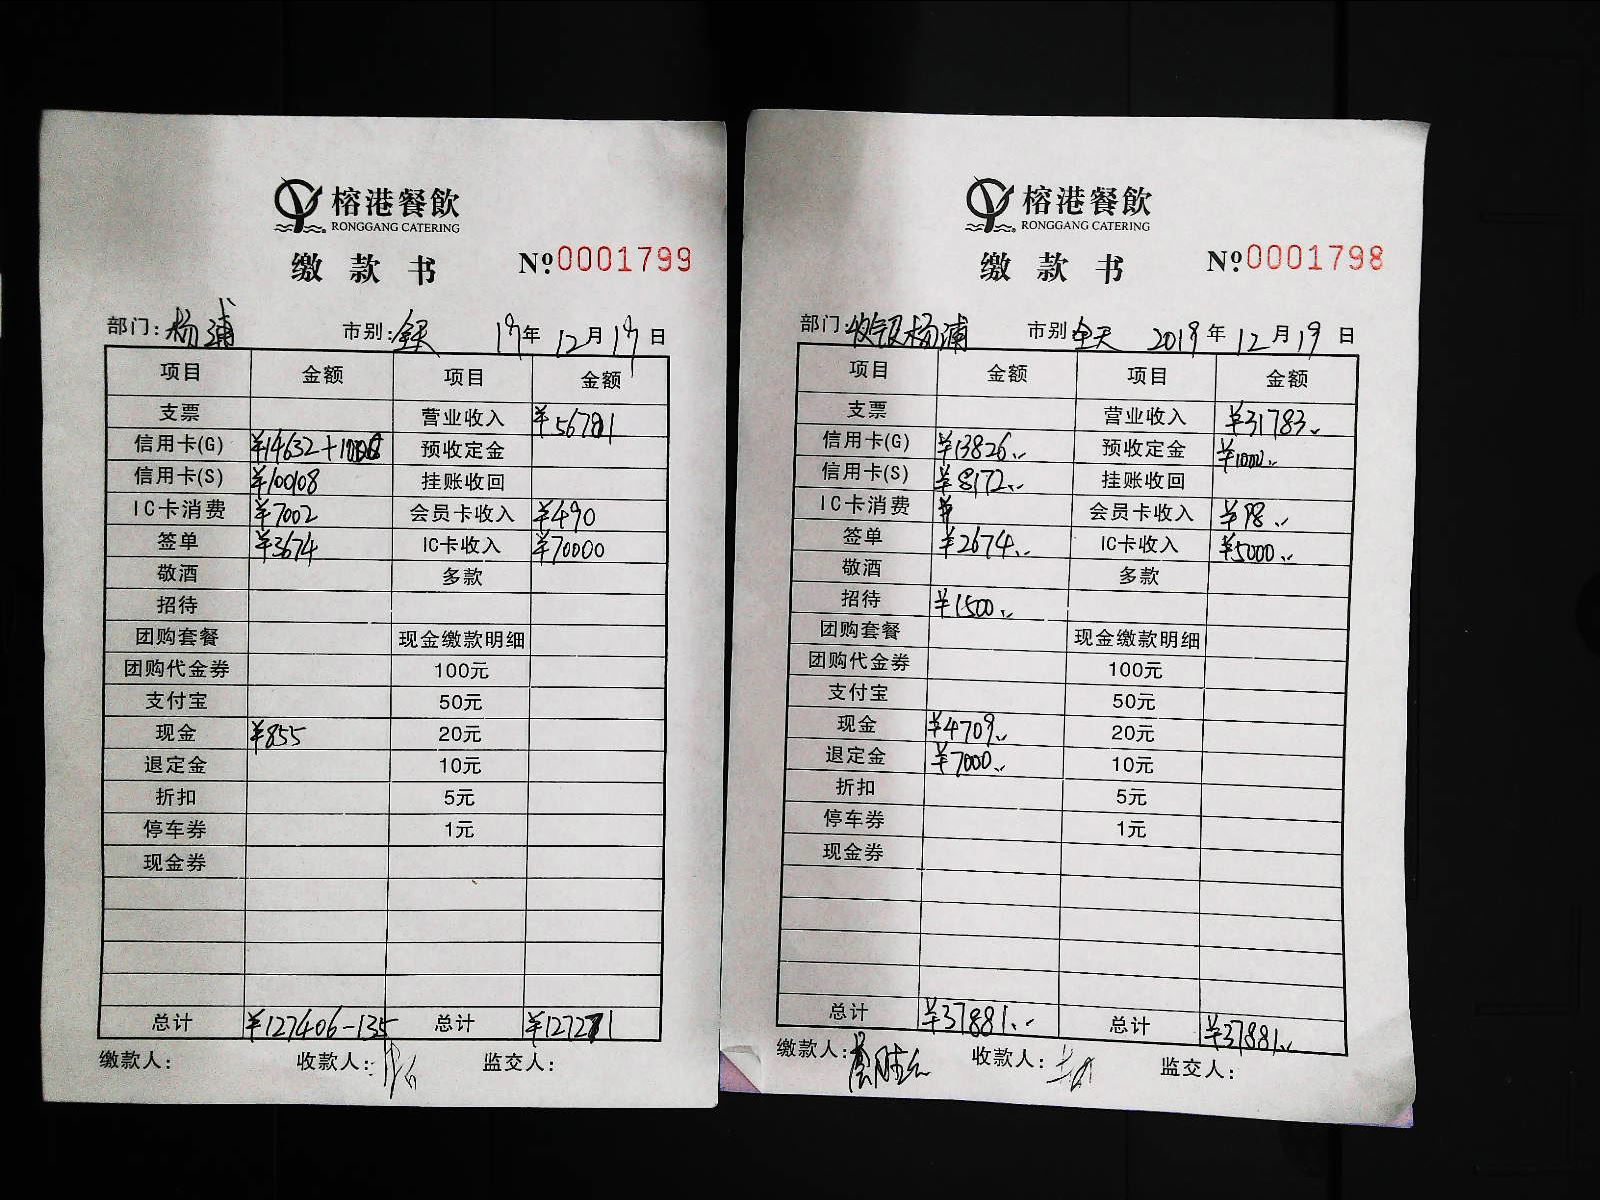 榕港餐飲
RONGGANG CATERING
缴款书 №0001799
部门：杨浦 市别：全天 19年12月19日
项目 金额 项目 金额
支票 营业收入 ¥56781
信用卡(G) ¥14632+1000 预收定金
信用卡(S) ¥100108 挂账收回
IC卡消费 ¥7002 会员卡收入 ¥490
签单 ¥3674 IC卡收入 ¥70000
敬酒 多款
招待
团购套餐 现金缴款明细
团购代金券 100元
支付宝 50元
现金 ¥855 20元
退定金 10元
折扣 5元
停车券 1元
现金券
总计 ¥127406-135 总计 ¥127271
缴款人： 收款人： 监交人：
榕港餐飲
RONGGANG CATERING
缴款书 №0001798
部门：收银杨浦 市别 全天 2019年12月19日
项目 金额 项目 金额
支票 营业收入 ¥31783
信用卡(G) ¥13826 预收定金 ¥1000
信用卡(S) ¥8172 挂账收回
IC卡消费 ¥ 会员卡收入 ¥98
签单 ¥2674 IC卡收入 ¥5000
敬酒 多款
招待 ¥1500
团购套餐 现金缴款明细
团购代金券 100元
支付宝 50元
现金 ¥4709 20元
退定金 ¥7000 10元
折扣 5元
停车券 1元
现金券
总计 ¥37881 总计 ¥37881
缴款人： 收款人： 监交人：